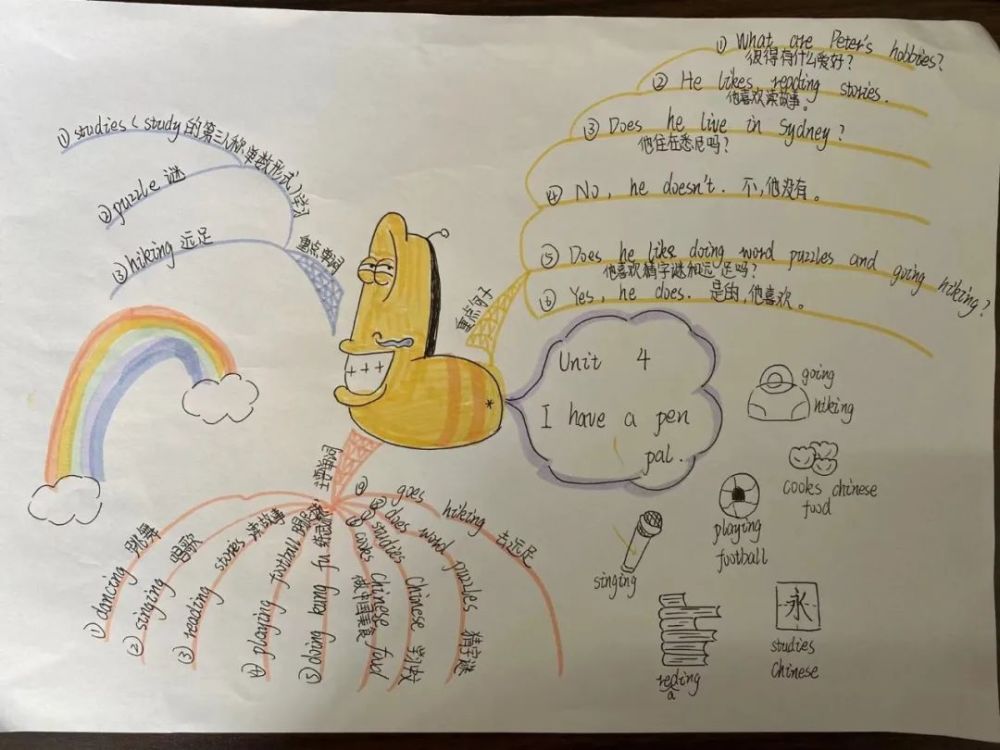 Unit 4
I have a pen
pal.
重点单词
① studies (study的第三人称单数形式) 学习
② puzzle 谜
③ hiking 远足
重点句子
① What are Peter's hobbies?
彼得有什么爱好?
② He likes reading stories.
他喜欢读故事。
③ Does he live in Sydney?
他住在悉尼吗?
④ No, he doesn't. 不,他没有。
⑤ Does he like doing word puzzles and going hiking?
他喜欢猜字谜和远足吗?
⑥ Yes, he does. 是的,他喜欢。
主要单词
① dancing 跳舞
② singing 唱歌
③ reading stories 读故事
④ playing football 踢足球
⑤ doing kung fu 练武术
cooks Chinese food
做中国美食
studies Chinese 学习汉
does word puzzles 猜字谜
goes hiking 去远足
going
hiking
cooks chinese
food
playing
football
singing
永
studies
chinese
reding
a